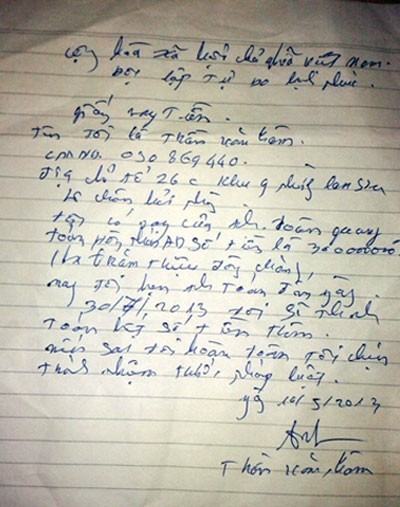 cộng hòa xã hội chủ nghĩa việt nam.
Độc lập Tự do hạnh phúc.
giấy vay Tiền.
Tên Tôi là Thân văn
CMND. 030869440.
Địa chỉ Tổ 26 c Khu 9 phường lam Sơn
lê chân hải phòng
tôi có vay của anh. Hoàng quang
số tiền là 300000000
(ba trăm triệu đồng chẵn),
nay tôi hẹn anh toàn đến ngày
30/7/2013 tôi sẽ Thanh
Toán hết số tiền Trên.
nếu sai tôi hoàn toàn tội chịu
trách nhiệm trước pháp luật.
10/5/2013
Thân văn